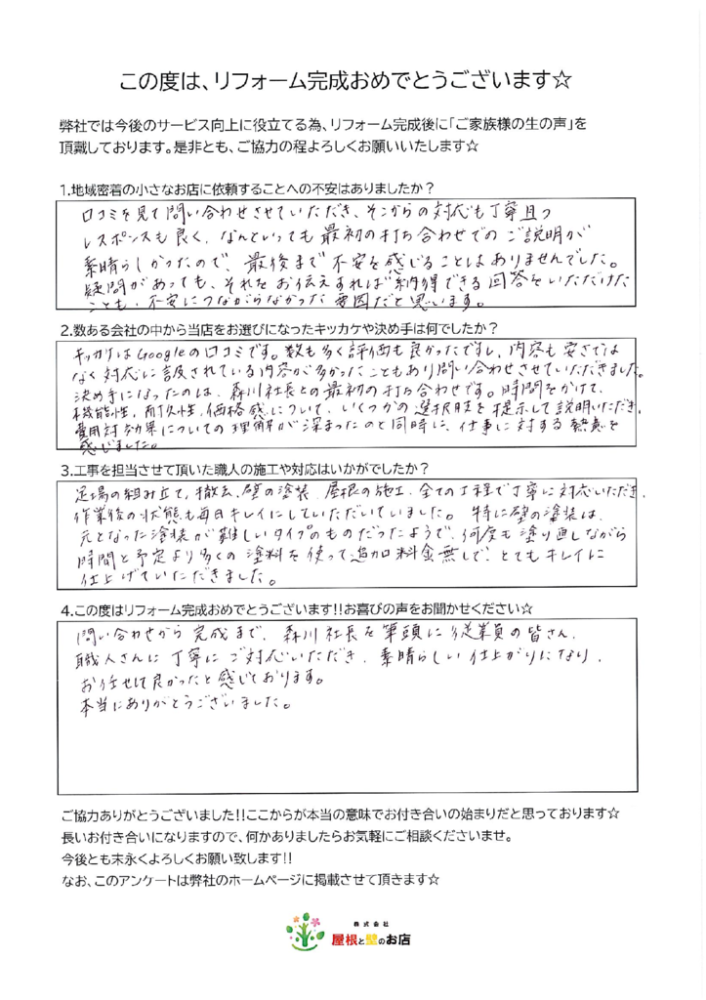 この度は、リフォーム完成おめでとうございます☆
弊社では今後のサービス向上に役立てる為、リフォーム完成後に「ご家族様の生の声」を
頂戴しております。是非とも、ご協力の程よろしくお願いいたします☆
1.地域密着の小さなお店に依頼することへの不安はありましたか？
口コミを見て問い合わせさせていただき、そこからの対応も丁寧且つ
レスポンスも良く、なんといっても最初の打ち合わせでのご説明が
素晴らしかったので、最後まで不安を感じることはありませんでした。
疑問があっても、それをお伝えすれば納得できる回答をいただけた
ことも、不安につながらなかった要因だと思います。
2.数ある会社の中から当店をお選びになったキッカケや決め手は何でしたか？
キッカケはGoogleの口コミです。数も多く評価も良かったですし、内容も安さでは
なく対応に言及されている内容が多かったこともあり問い合わせさせていただきました。
決め手になったのは、森川社長との最初の打ち合わせです。時間をかけて、
機能性、耐久性、価格感について、いくつかの選択肢を提示して説明いただき、
費用対効果についての理解が深まったのと同時に、仕事に対する熱意を
感じました。
3.工事を担当させて頂いた職人の施工や対応はいかがでしたか？
足場の組み立て、撤去、壁の塗装、屋根の施工、全ての工程で丁寧に対応いただき、
作業後の状態も毎日キレイにしていただいていました。特に壁の塗装は、
元となった塗装が難しいタイプのものだったようで、何度も塗り直しながら
時間と予定より多くの塗料を使って追加料金無しで、とてもキレイに
仕上げていただきました。
4.この度はリフォーム完成おめでとうございます!!お喜びの声をお聞かせください☆
問い合わせから完成まで、森川社長を筆頭に従業員の皆さん、
職人さんに丁寧にご対応いただき、素晴らしい仕上がりになり、
お任せして良かったと感じております。
本当にありがとうございました。
ご協力ありがとうございました!!ここからが本当の意味でお付き合いの始まりだと思っております☆
長いお付き合いになりますので、何かありましたらお気軽にご相談くださいませ。
今後とも末永くよろしくお願い致します!!
なお、このアンケートは弊社のホームページに掲載させて頂きます☆
株式会社
屋根と壁のお店